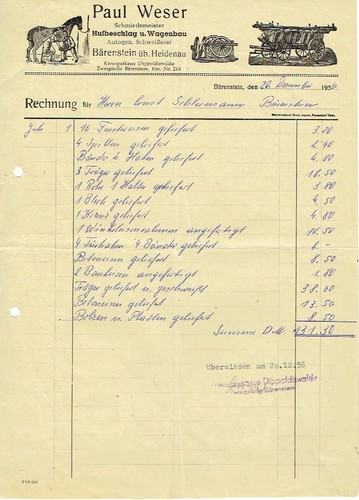 Paul Weser
Schmiedemeister
Hufbeschlag u. Wagenbau
Autogen. Schweißerei
Bärenstein üb. Heidenau
Kreissparkasse Dippoldiswalde
Zweigstelle Bärenstein, Kto. Nr. 214
Bärenstein, den 20. Dezember 1956
Rechnung für Herrn Ernst Bärenstein
Juli 1 16 geliefert 3,20
4 geliefert 2,40
Bände u. Haken geliefert 4,80
3 Träger geliefert 18,50
1 Rohr 1 geliefert 3,80
1 Blech geliefert 4,50
1 geliefert 4,80
1 Winkeleisenrahmen angefertigt 14,50
4 4 Bänder geliefert 8,-
Betoneisen geliefert 8,50
2 angefertigt 1,80
Träger geliefert u. geschweißt 38,60
Betoneisen geliefert 13,50
Bolzen u. Platten geliefert 8,50
Summe D.M. 131,30
Überwiesen am 20.12.56
Kreissparkasse Dippoldiswalde
Zweigstelle Bärenstein